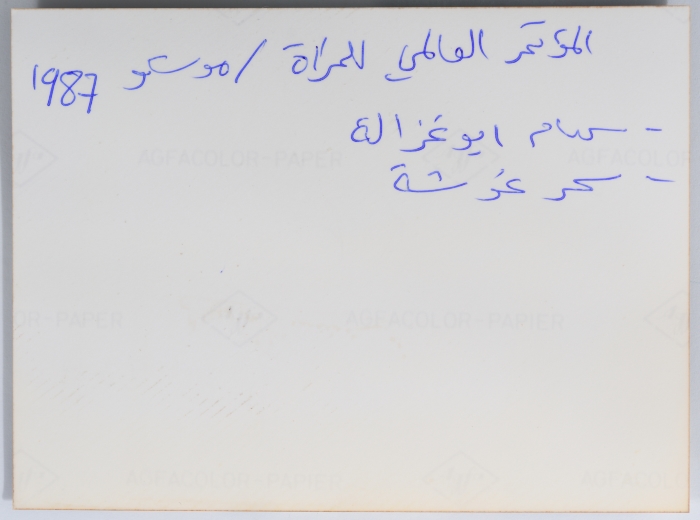 المؤتمر العالمي للمرأة / موسكو 1987
- سهام ابو غزالة
- سحر غوشة
AGFACOLOR-PAPER AGFACOLOR
OR-PAPER AGFACOLOR-PAPER
AGFACOLOR-PAPER AGFACOLO